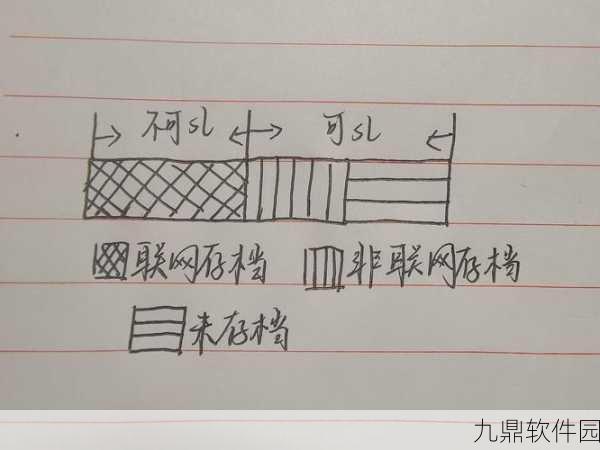 不可sl 可sl
联网存档 非联网存档
未存档
九鼎软件园